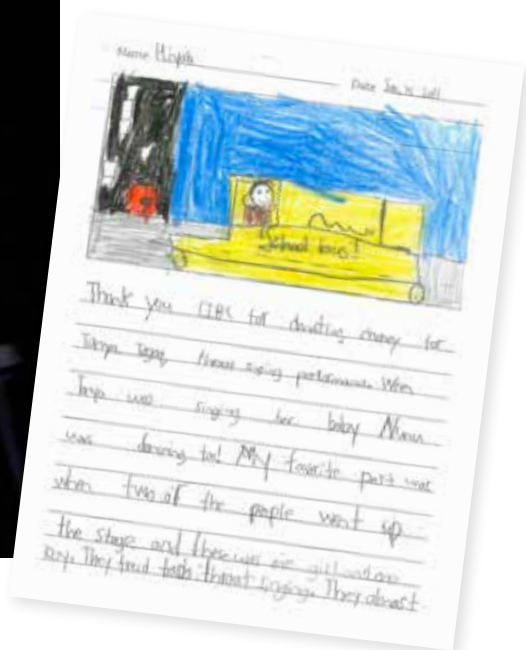 Name
Date Jan, 15
School bus!
Thank you CIBC for donating money for
Tanya Tagaq throat singing performance. When
Tanya was singing her baby
was dancing too! My favorite part was
when two of the people went up
the stage and there was one girl and one
boy. They tried both throat singing. They almost